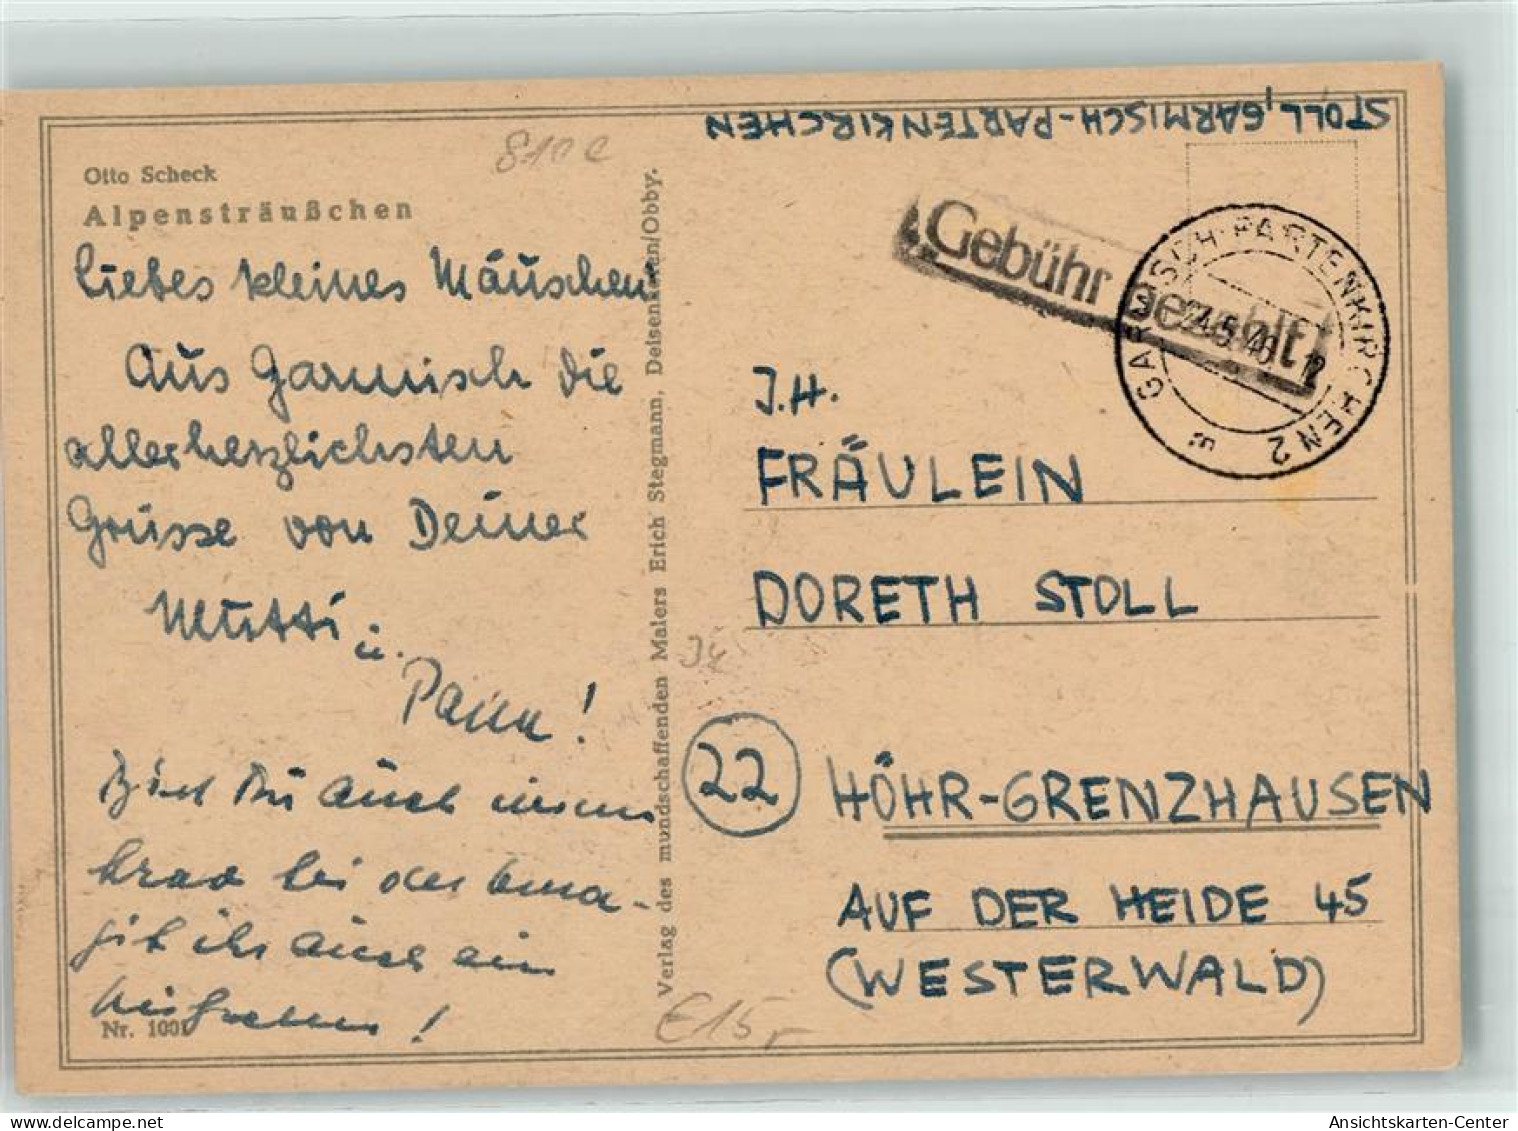 STOLL, GARMISCH-PARTENKIRCHEN
810 e
Otto Scheck
Alpensträußchen
Liebes kleines Mäuschen
Aus Garmisch die
allerherzlichsten
Grüsse von Deiner
Mutti u.
Papa!
Bist Du auch immer
brav bei der Oma -
gib ihr auch ein
!
Nr. 1001
Verlag des mundschaffenden Malers Erich Stegmann, Deisenhofen/Obby.
Gebühr bezahlt
GARMISCH-PARTENKIRCHEN 2
24.5.48 12
J.H.
FRÄULEIN
DORETH STOLL
22 HÖHR-GRENZHAUSEN
AUF DER HEIDE 45
(WESTERWALD)
€15,-
Ansichtskarten-Center